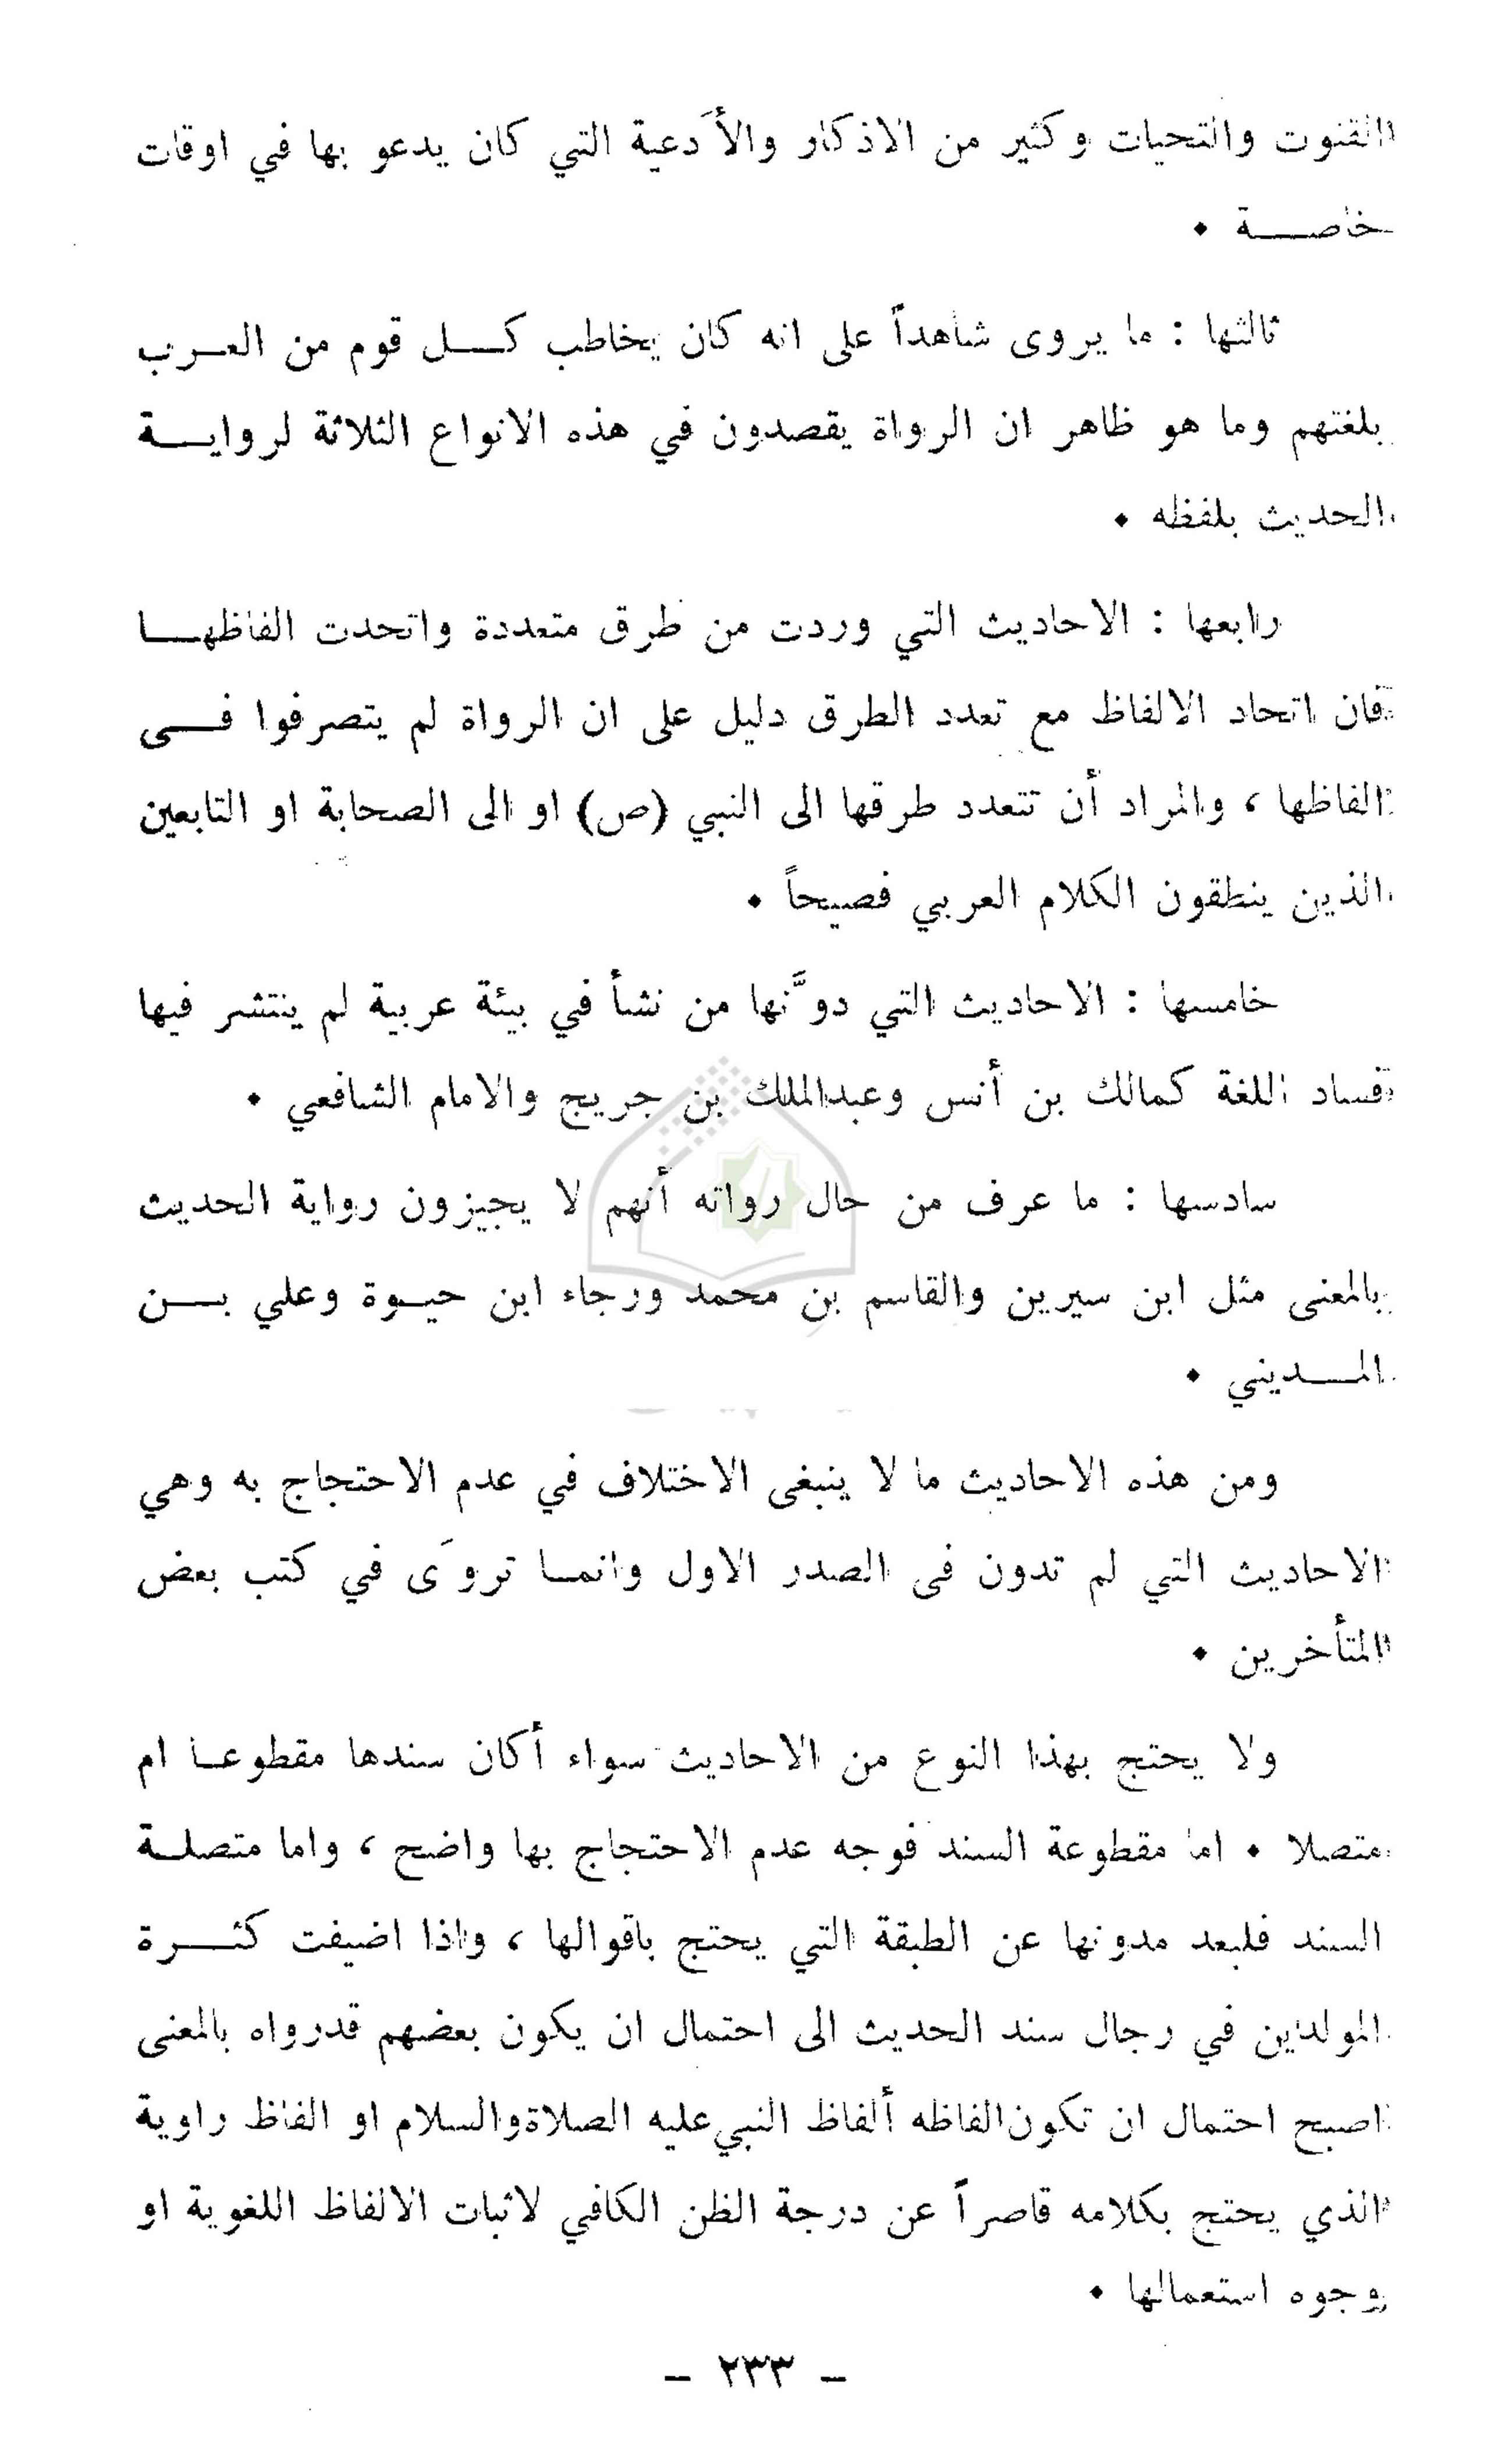 القنوت والتحيات وكثير من الاذكار والأَدعية التي كان يدعو بها في اوقات
خاصـــة ٠
ثالثها : ما يروى شاهداً على انه كان يخاطب كـــل قوم من العــرب
بلغتهم وما هو ظاهر ان الرواة يقصدون في هذه الانواع الثلاثة لروايـــة
الحديث بلفظه ٠
رابعها : الاحاديث التي وردت من طرق متعددة واتحدت الفاظهـــا
فان اتحاد الالفاظ مع تعدد الطرق دليل على ان الرواة لم يتصرفوا فـــى
الفاظها ، والمراد أن تتعدد طرقها الى النبي (ص) او الى الصحابة او التابعين
الذين ينطقون الكلام العربي فصيحاً ٠
خامسها : الاحاديث التي دوَّنها من نشأ في بيئة عربية لم ينتشر فيها
فساد اللغة كمالك بن أنس وعبدالملك بن جريج والامام الشافعي ٠
سادسها : ما عرف من حال رواته أنهم لا يجيزون رواية الحديث
بالمعنى مثل ابن سيرين والقاسم بن محمد ورجاء ابن حيــوة وعلي بـــن
المـــديني ٠
ومن هذه الاحاديث ما لا ينبغى الاختلاف في عدم الاحتجاج به وهي
الاحاديث التي لم تدون فى الصدر الاول وانمــا تروَى في كتب بعض
المتأخرين ٠
ولا يحتج بهذا النوع من الاحاديث سواء أكان سندها مقطوعــا ام
متصلا ٠ اما مقطوعة السند فوجه عدم الاحتجاج بها واضح ، واما متصلــة
السند فلبعد مدونها عن الطبقة التي يحتج باقوالها ، واذا اضيفت كثـــرة
المولدين في رجال سند الحديث الى احتمال ان يكون بعضهم قدرواه بالمعنى
اصبح احتمال ان تكون الفاظه ألفاظ النبي عليه الصلاة والسلام او الفاظ راوية
الذي يحتج بكلامه قاصراً عن درجة الظن الكافي لاثبات الالفاظ اللغوية او
وجوه استعمالها ٠
– ٢٣٣ –